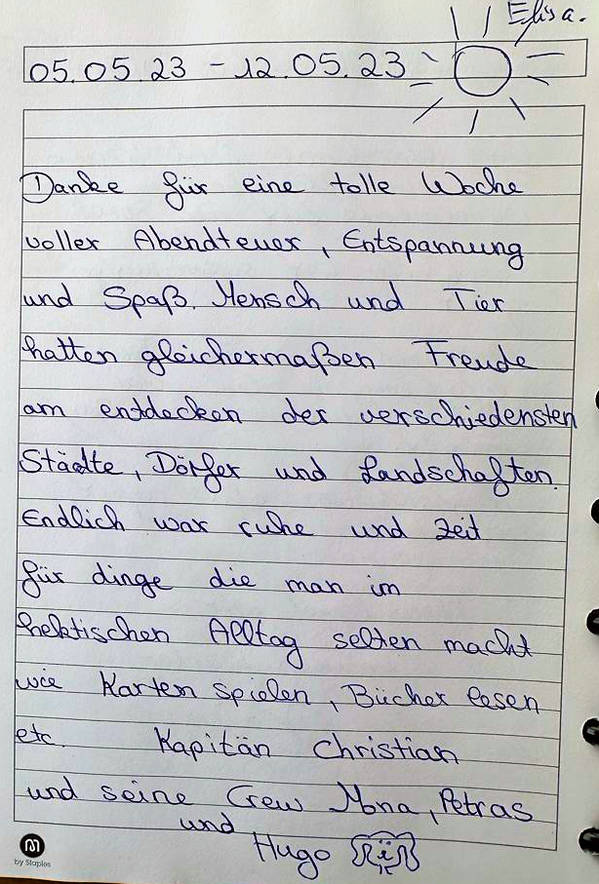 Elisa.
05.05.23 - 12.05.23
Danke für eine tolle Woche
voller Abendteuer, Entspannung
und Spaß. Mensch und Tier
hatten gleichermaßen Freude
am entdecken der verschiedensten
Städte, Dörfer und Landschaften.
Endlich war ruhe und Zeit
für dinge die man im
hektischen Alltag selten macht
wie Karten spielen, Bücher lesen
etc. Kapitän Christian
und seine Crew Mona, Petras
und
Hugo
by Staples